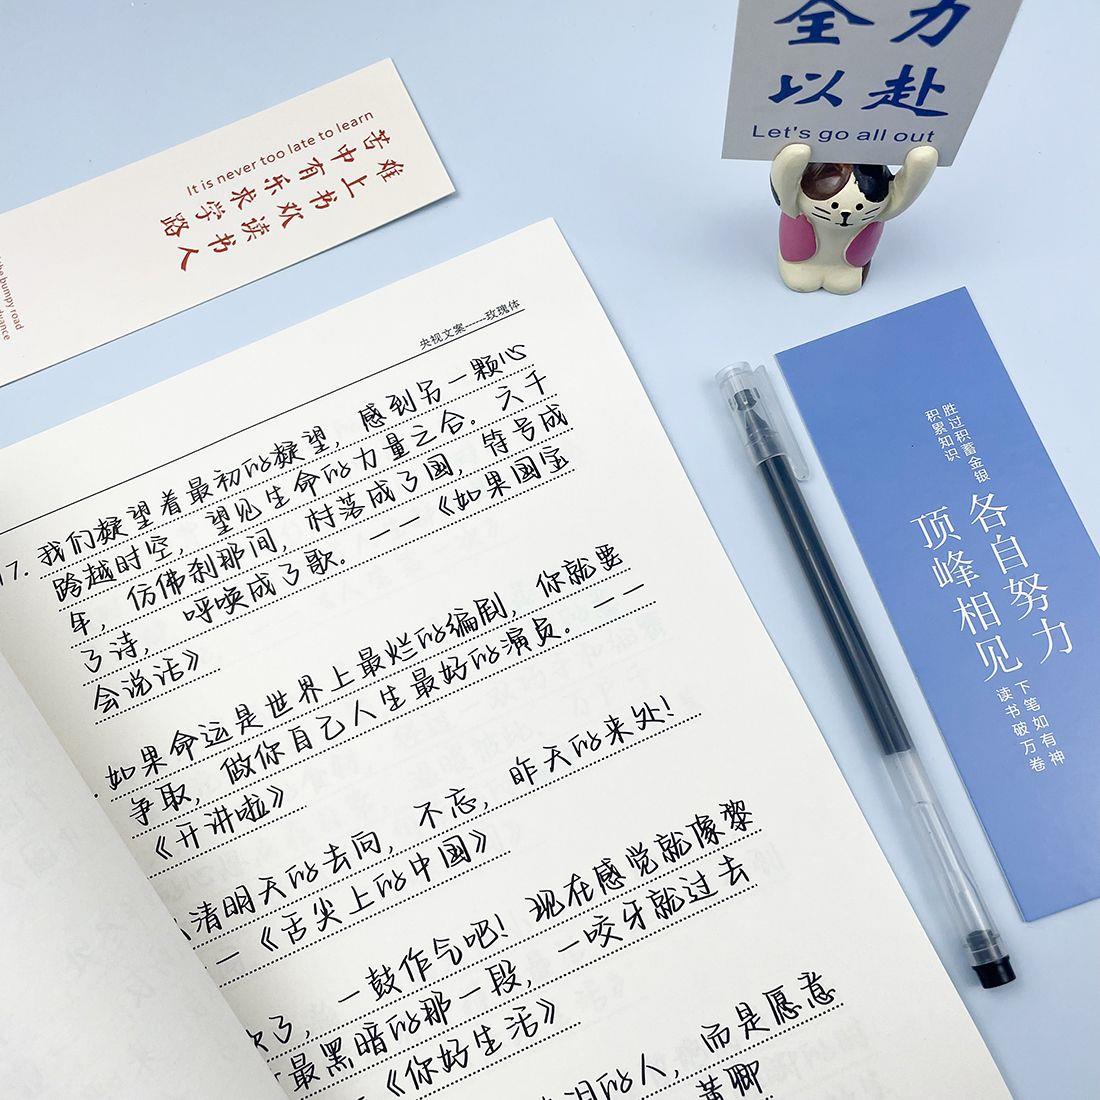 全力
以赴
Let's go all out
It is never too late to learn
苦中有乐求学路
难上书欢读书人
the bumpy road
央视文案------玫瑰体
17. 我们凝望着最初的凝望，感到另一颗心
跨越时空，望见生命的力量之合。六千
年，仿佛刹那间，村落成了国，符号成
了诗，呼唤成了歌。——《如果国宝
会说话》
如果命运是世界上最烂的编剧，你就要
争取，做你自己人生最好的演员。——
《开讲啦》
清明天的去向，不忘，昨天的来处！
——《舌尖上的中国》
一鼓作气吧！现在感觉就像黎
最黑暗的那一段，一咬牙就过去
了，
《你好生活》
的人，而是愿意
黄卿
胜过积蓄金银
积累知识
各自努力
顶峰相见
下笔如有神
读书破万卷